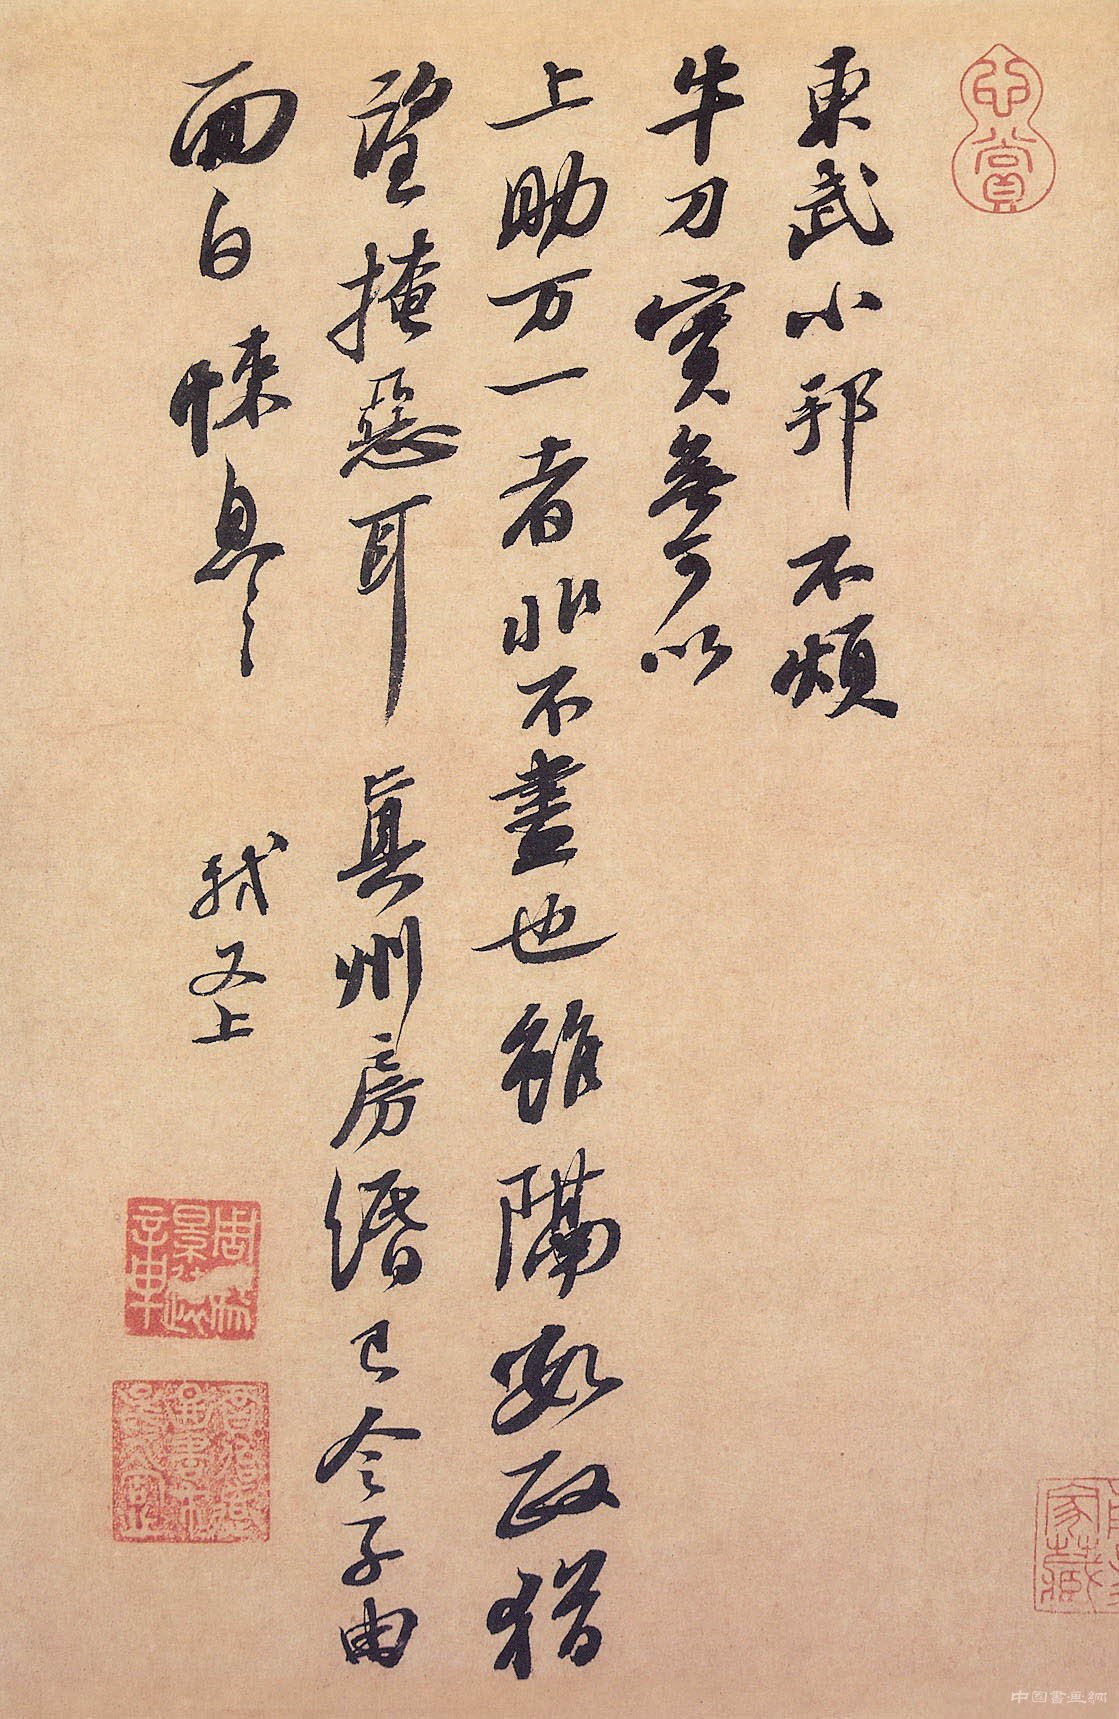 東武小邦不煩
牛刀實無可以
上助万一者非不盡也雖隔數政猶
望掩惡耳真州房緡已令子由
面白悚息〻
軾又上
心賞
家藏
中国書画網